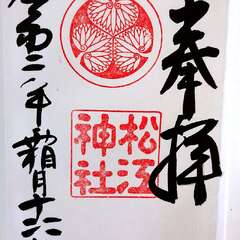 奉拝
松江
神社
令和二年霜月十六